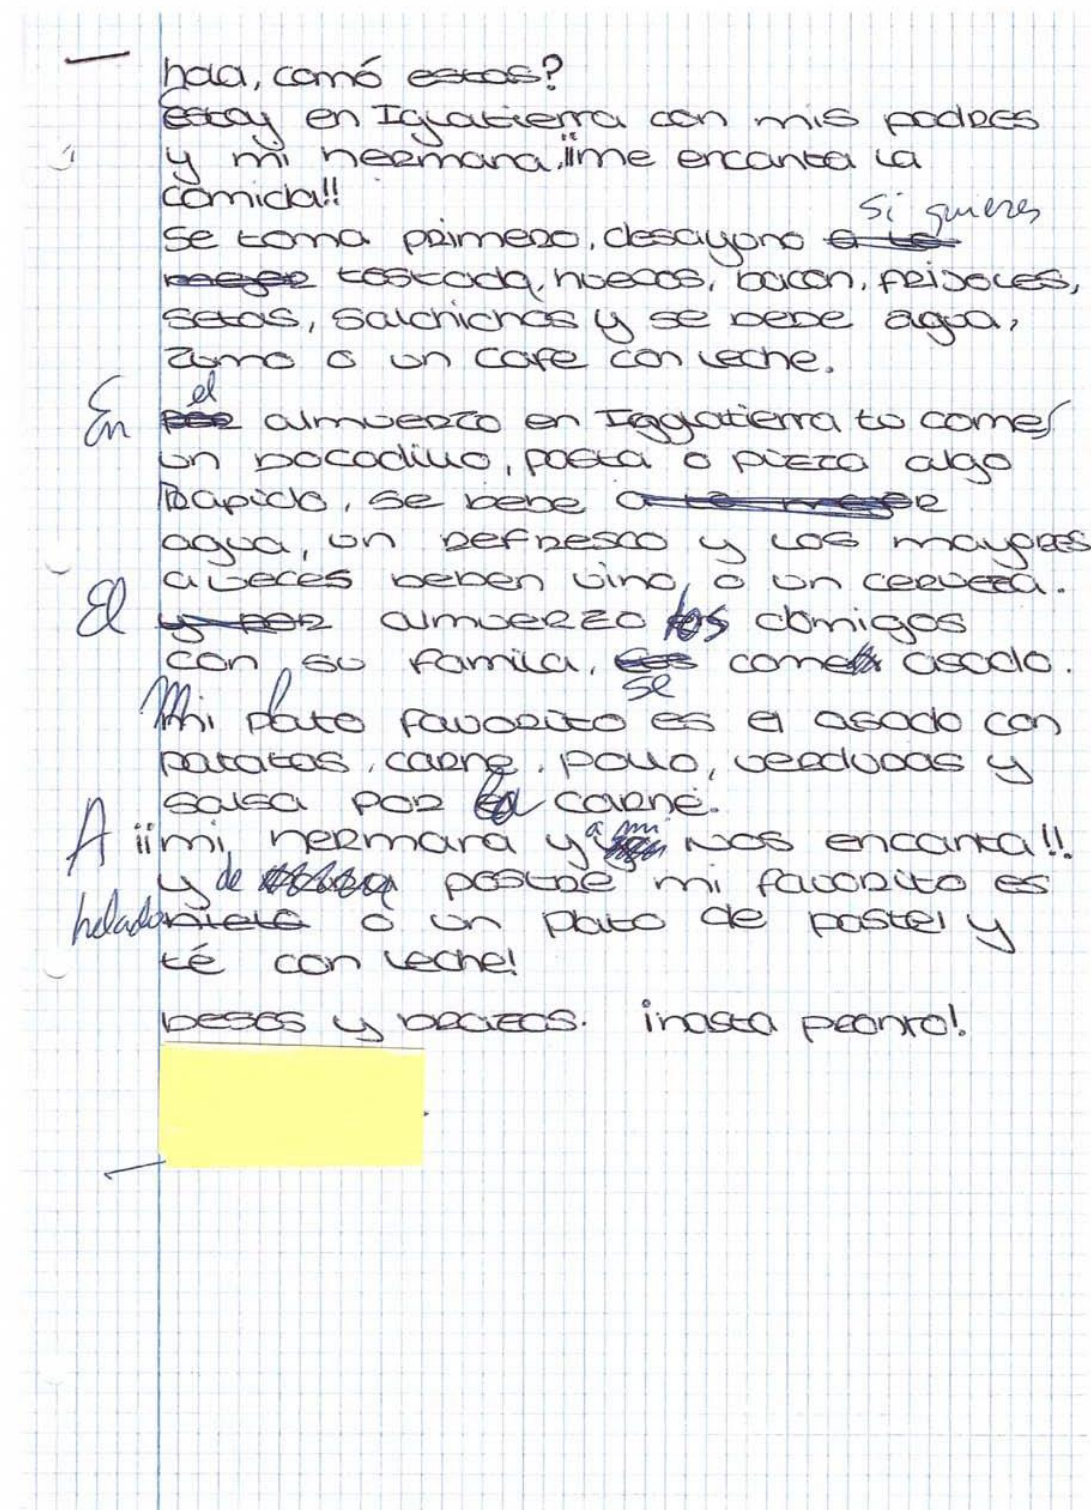 hola, comó estas?
Estoy en Iglatierra con mis padres
y mi hermana, ¡¡me encanta la
comida!!
si quieres
se toma primero, desayono a lo
mejor tostada, huevos, bacon, frijoles,
setas, salchichas y se bebe agua,
zumo o un cafe con leche.
En el
por almuerzo en Igglatierra tu comes
un bocadillo, pasta o pizza algo
rapido, se bebe a lo mejor
agua, un refresco y los mayores
a veces beben vino, o un cerveza.
El y por almuerzo los domigos
con su familia, se come asado.
Mi plato favorito es el asado con
patatas, carne, pollo, verduras y
salsa por la carne.
A ¡¡mi hermana y a mi nos encanta!!
y de postre mi favorito es
helado o un plato de pastel y
té con leche!
besos y brazos. ¡hasta pronto!